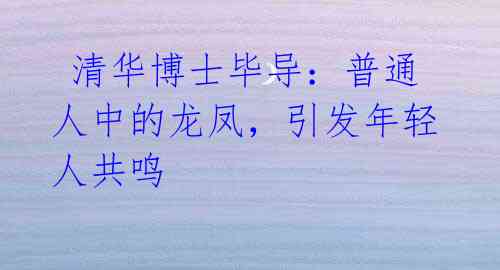 清华博士毕导：普通
人中的龙凤，引发年轻
人共鸣